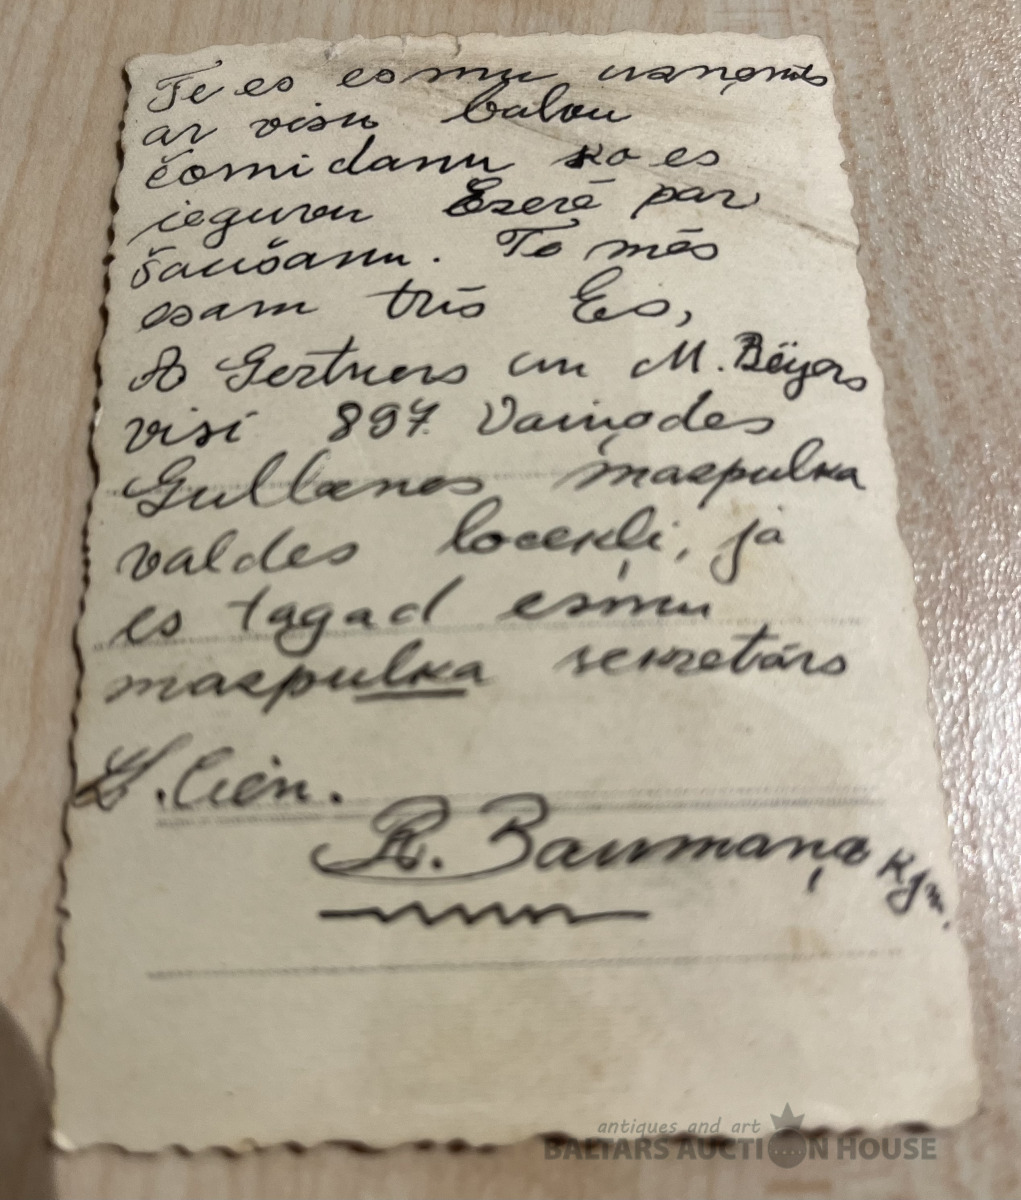 Te es esmu uzņemts
ar visu balvu
čomidanu ko es
ieguvu Ezerē par
šaušanu. Te mēs
esam trīs Es,
A Gertners un M. Bēijers
visi 897. Vaiņodes
mazpulka
valdes locekļi, jā
es tagad esmu
mazpulka sekretārs
cien.
R. Baumaņa kgm.
antiques and art
BALTARS AUCTION HOUSE